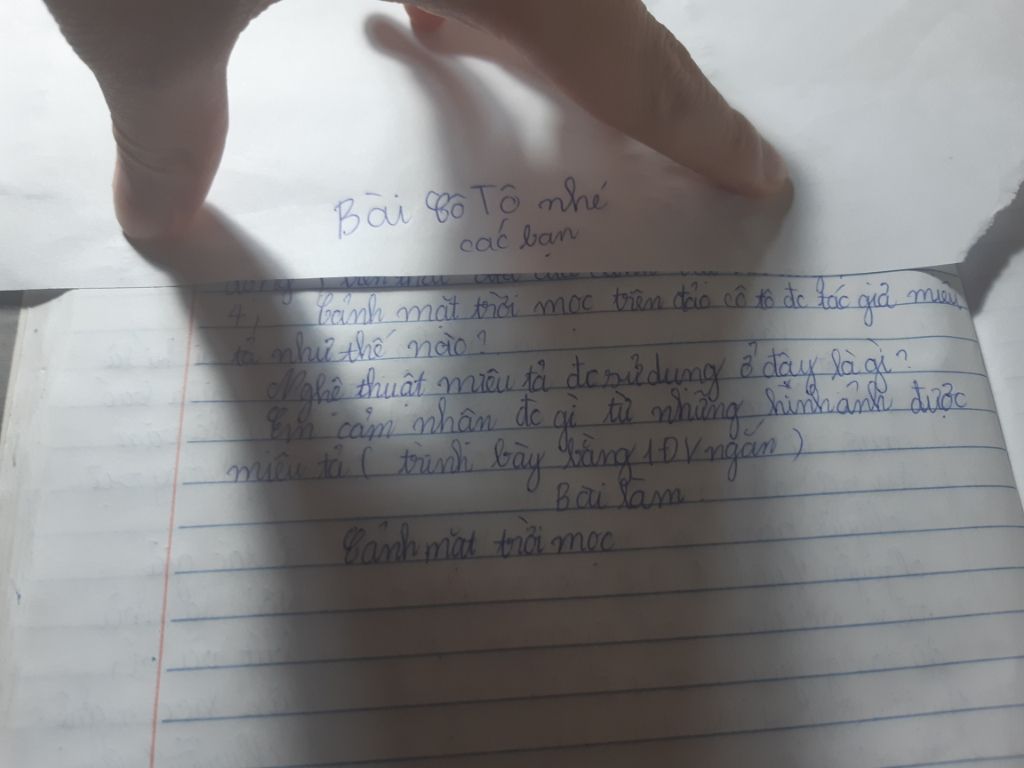 Bài Cô Tô nhé
các bạn
4, Cảnh mặt trời mọc trên đảo cô tô đc tác giả miêu
tả như thế nào?
Nghệ thuật miêu tả đc sử dụng ở đây là gì?
Em cảm nhân đc gì từ những hình ảnh được
miêu tả ( trình bày bằng 1 ĐV ngắn )
Bài làm
Cảnh mặt trời mọc